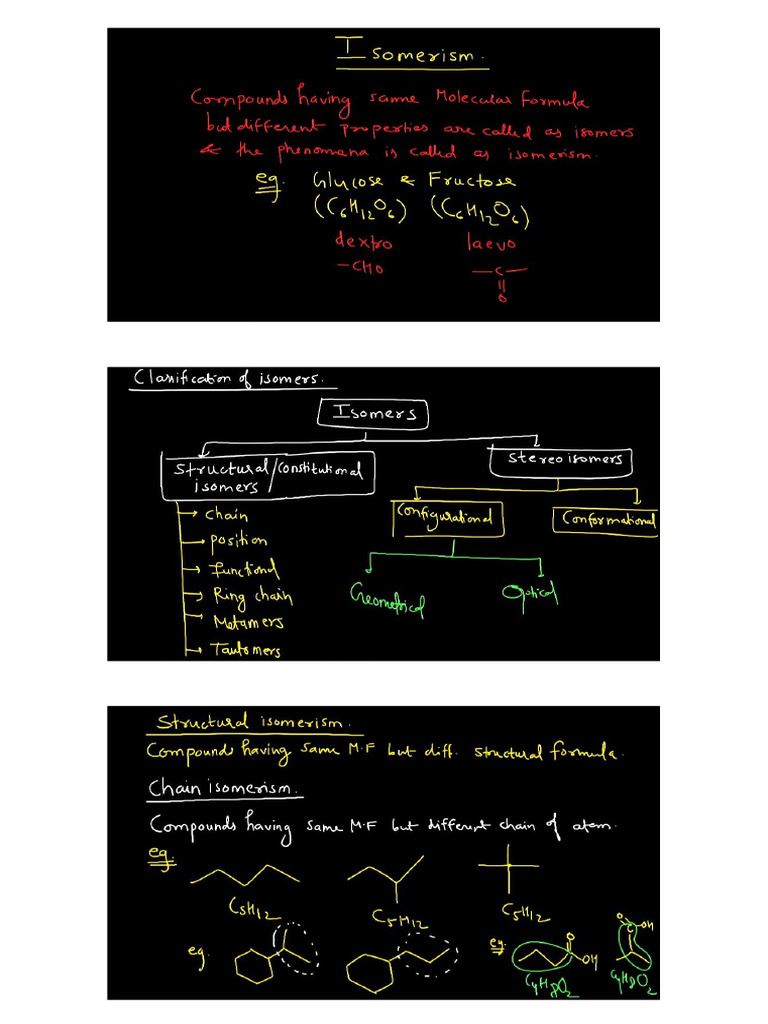 Isomerism.
Compounds having same Molecular formula
but different properties are called as isomers
& the phenomena is called as isomerism.
eg. Glucose & Fructose
(C6H12O6) (C6H12O6)
dextro laevo
-CHO -C-
O
Classification of isomers.
Isomers
Structural/Constitutional isomers
Stereoisomers
Chain
Position
Functional
Ring chain
Metamers
Tautomers
Configurational
Conformational
Geometrical
Optical
Structural isomerism.
Compounds having same M.F but diff. structural formula.
Chain isomerism.
Compounds having same M.F but different chain of atom.
eg.
C5H12 C5H12 C5H12
eg. eg.
O OH
O C OH
C4H8O2 C4H8O2